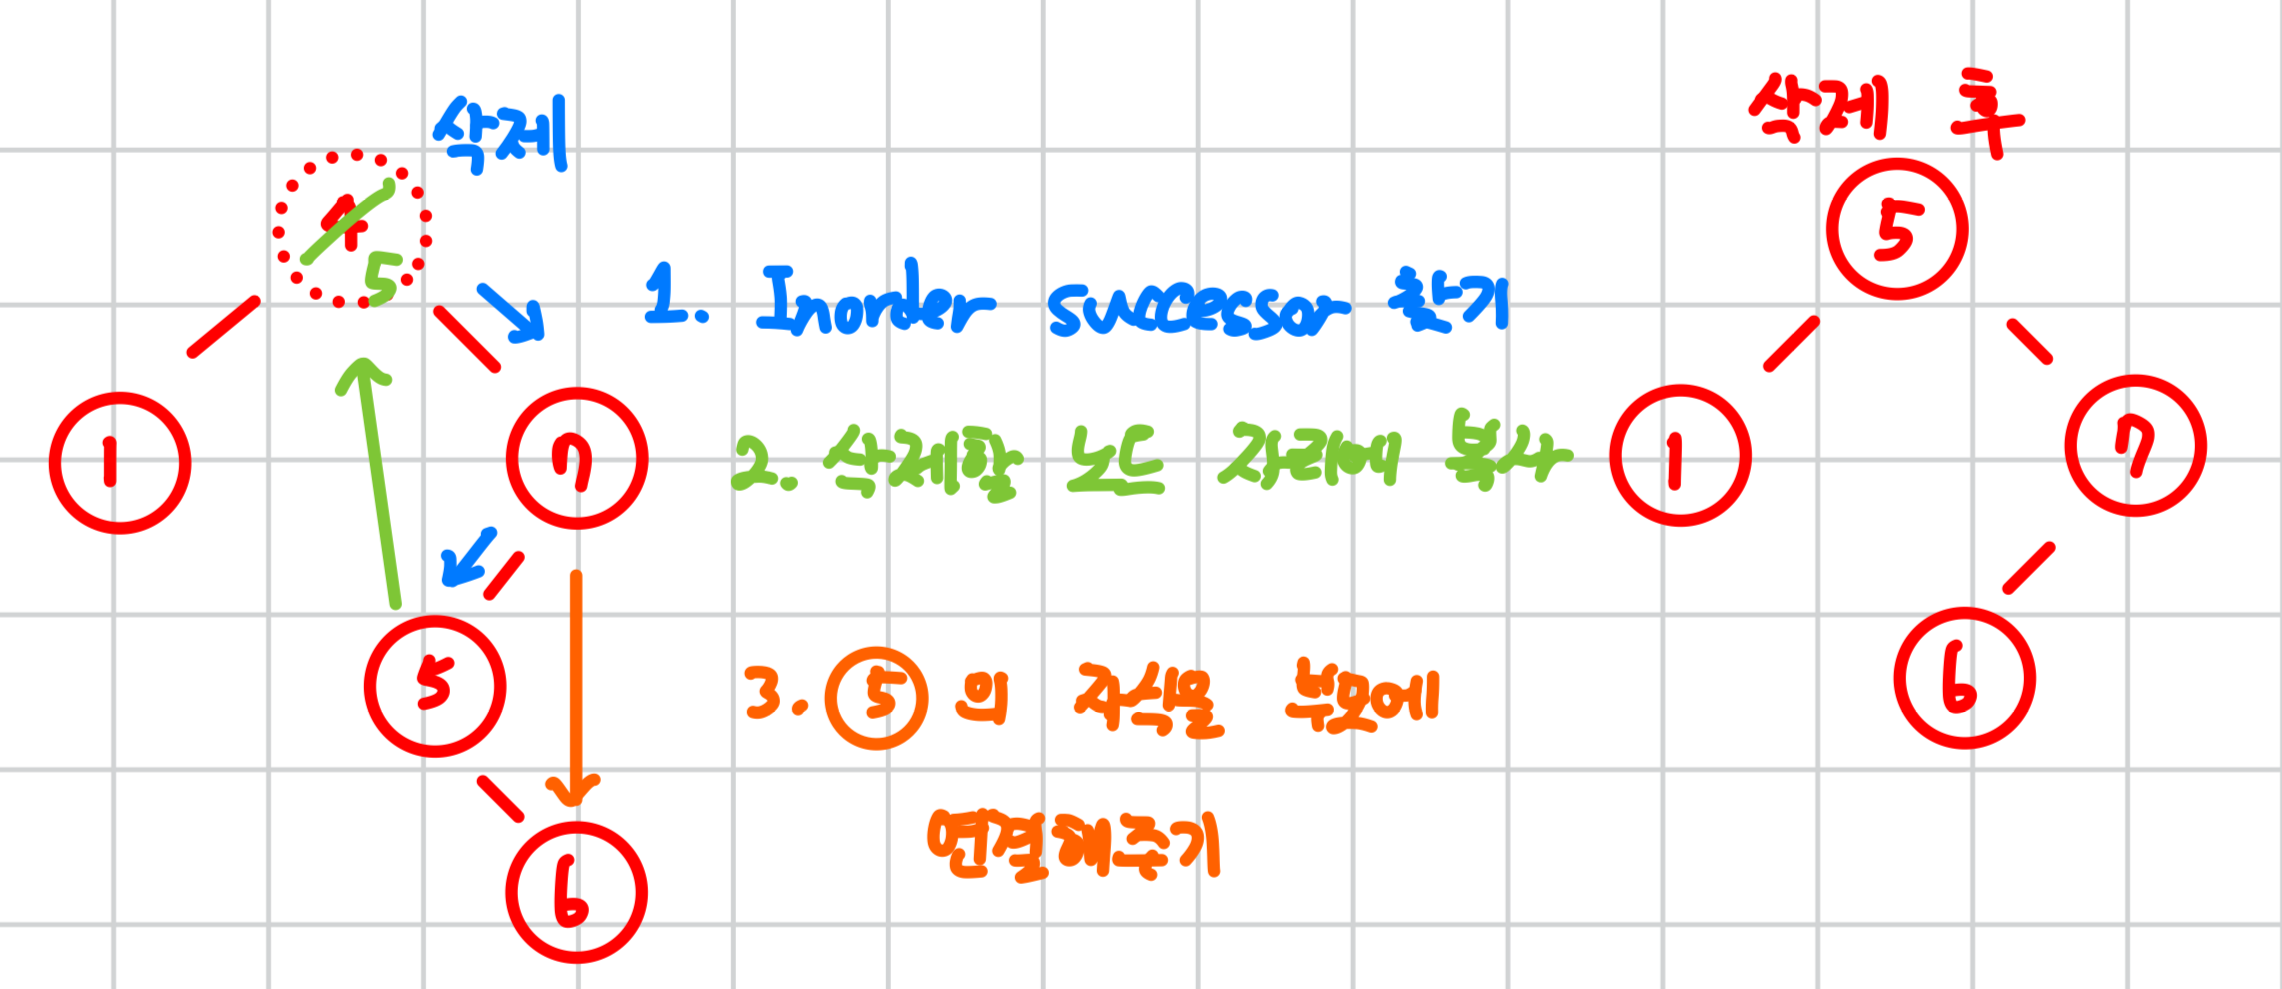 삭제
4
5
1. Inorder successor 찾기
1
7
2. 삭제할 노드 자리에 복사
5
3. ⑤의 자식을 부모에
연결해주기
6
삭제 후
5
1
7
6